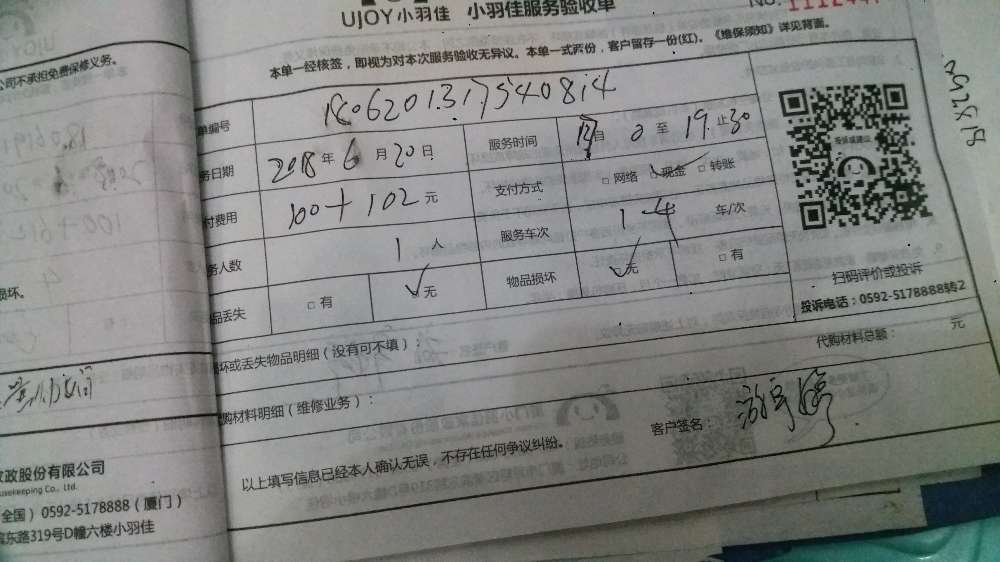 UJOY小羽佳 小羽佳服务验收单
NO.
本单一经核签，即视为对本次服务验收无异议。本单一式两份，客户留存一份(红)。《维保须知》详见背面。
单编号 1806201317540814
务日期 2018年6月20日 服务时间 至 19 止30
付费用 100+102元 支付方式 □网络 ✓现金 □转账
务人数 1人 服务车次 1 车/次
品丢失 □有 ✓无 物品损坏 ✓无 □有
扫码评价或投诉
投诉电话：0592-5178888转2
损坏或丢失物品明细（没有可不填）：
代购材料总额： 元
购材料明细（维修业务）：
客户签名：
以上填写信息已经本人确认无误，不存在任何争议纠纷。
公司不承担免费保修义务。
损坏。
家政股份有限公司
Housekeeping Co., Ltd.
全国）0592-5178888（厦门）
滨东路319号D幢六楼小羽佳